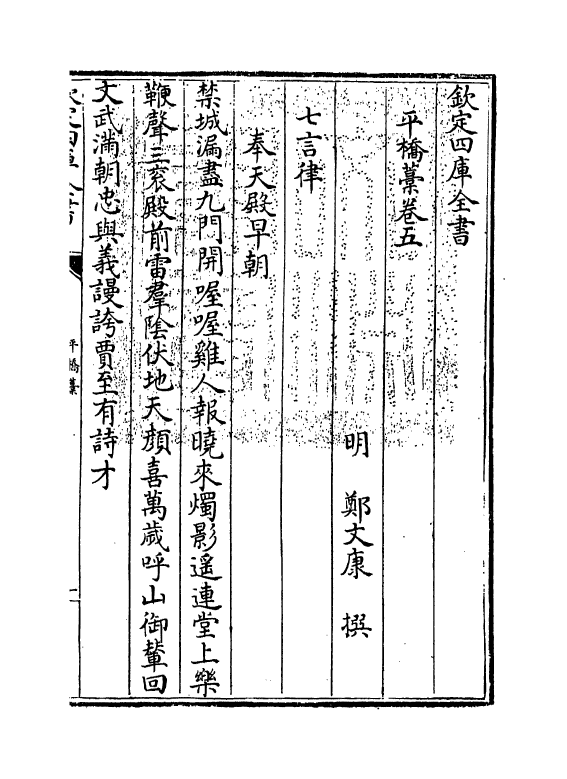 欽定四庫全書
平橋藁卷五
明　鄭文康　撰
七言律
奉天殿早朝
禁城漏盡九門開喔喔雞人報曉來燭影遥連堂上樂
鞭聲三衮殿前雷羣陰伏地天顔喜萬歲呼山御輦回
文武滿朝忠與義謾誇賈至有詩才
平橋藁